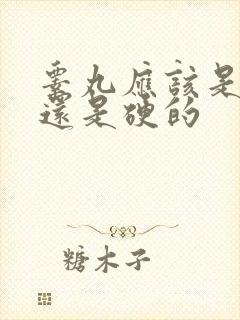 睪丸應該是
還是硬的
糖木子